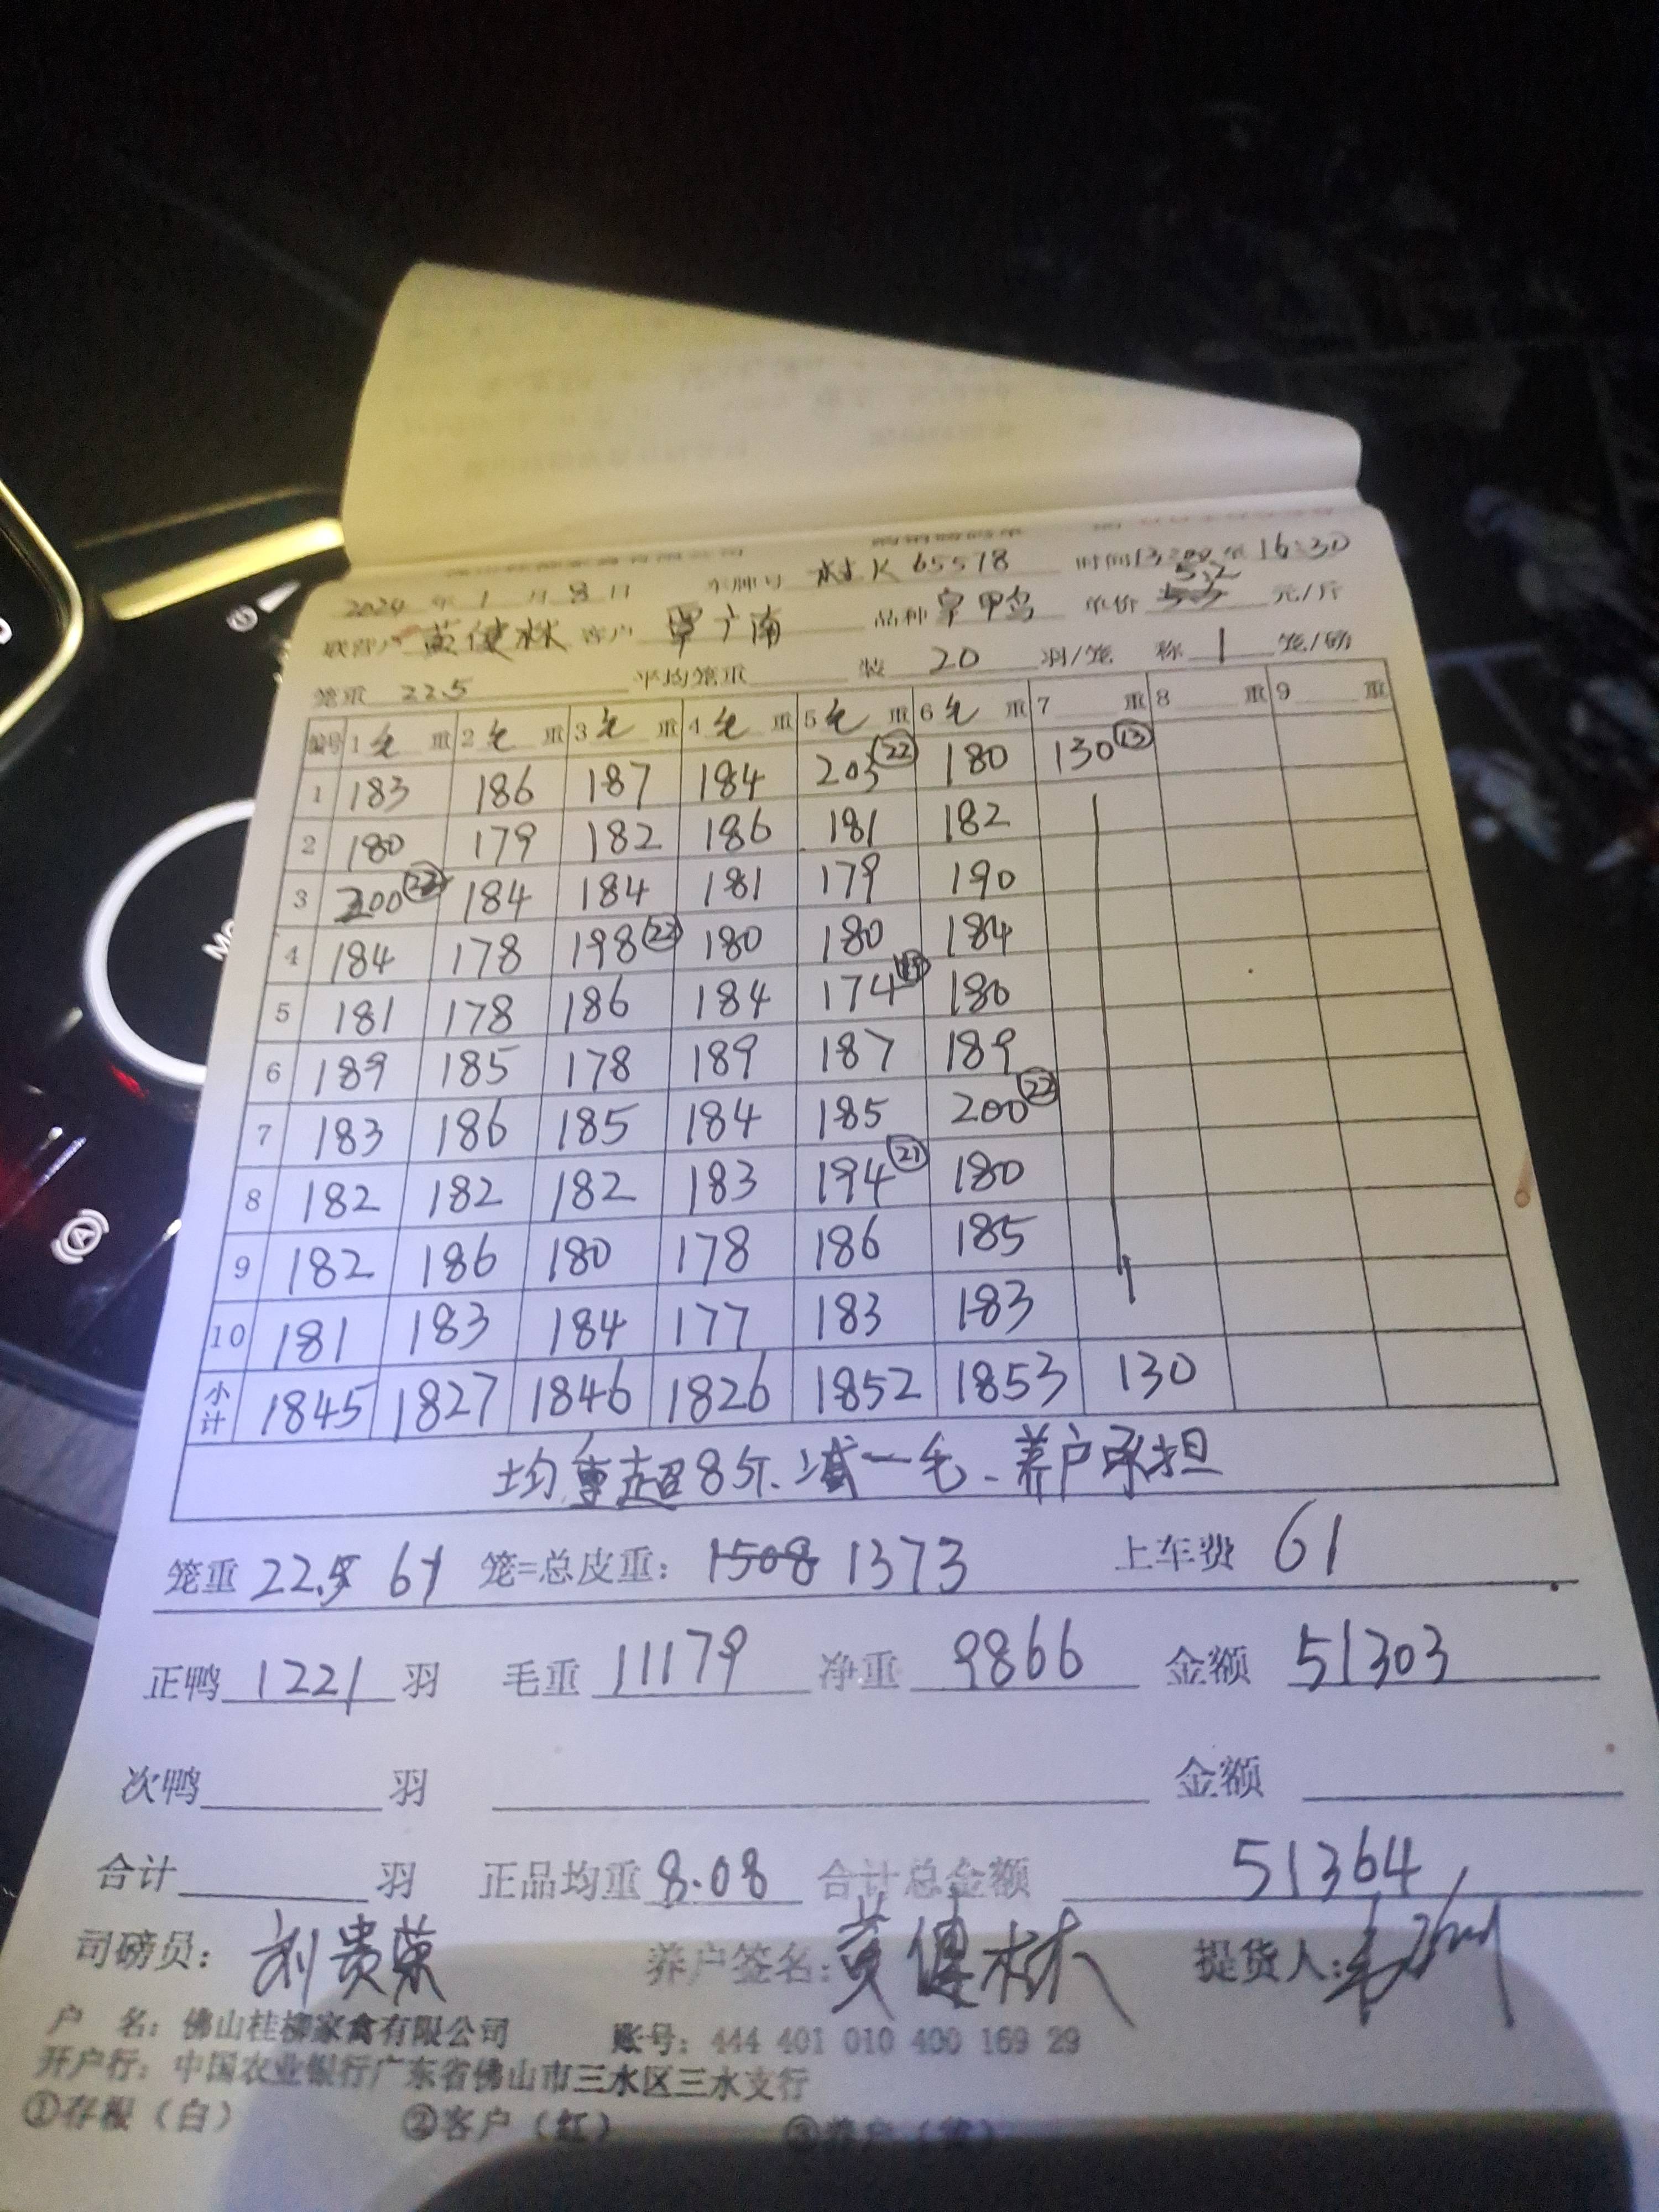 2024 年 1 月 8 日 车牌号 K 65578 时间 13:00 至 16:30
联营户 黄健林 客户 覃广南 品种 旱鸭 单价 5.2 元/斤
笼重 22.5 平均笼重 装 20 羽/笼 称 1 笼/磅
编号 1 毛 重 2 毛 重 3 毛 重 4 毛 重 5 毛 重 6 毛 重 7 重 8 重 9 重
1 183 186 187 184 203 22 180 130 13
2 180 179 182 186 181 182
3 200 22 184 184 181 179 190
4 184 178 198 22 180 180 184
5 181 178 186 184 174 180
6 189 185 178 189 187 189
7 183 186 185 184 185 200 22
8 182 182 182 183 194 21 180
9 182 186 180 178 186 185
10 181 183 184 177 183 183
小计 1845 1827 1846 1826 1852 1853 130
均重超8斤.减一毛.养户承担
笼重 22.5 61 笼=总皮重: 1508 1373 上车费 61
正鸭 1221 羽 毛重 11179 净重 9866 金额 51303
次鸭 羽 金额
合计 羽 正品均重 8.08 合计总金额 51364
司磅员: 刘贵荣 养户签名: 黄健林 提货人:
户 名: 佛山桂柳家禽有限公司 账号: 444 401 010 400 169 29
开户行: 中国农业银行广东省佛山市三水区三水支行
①存根(白) ②客户(红) ③养户